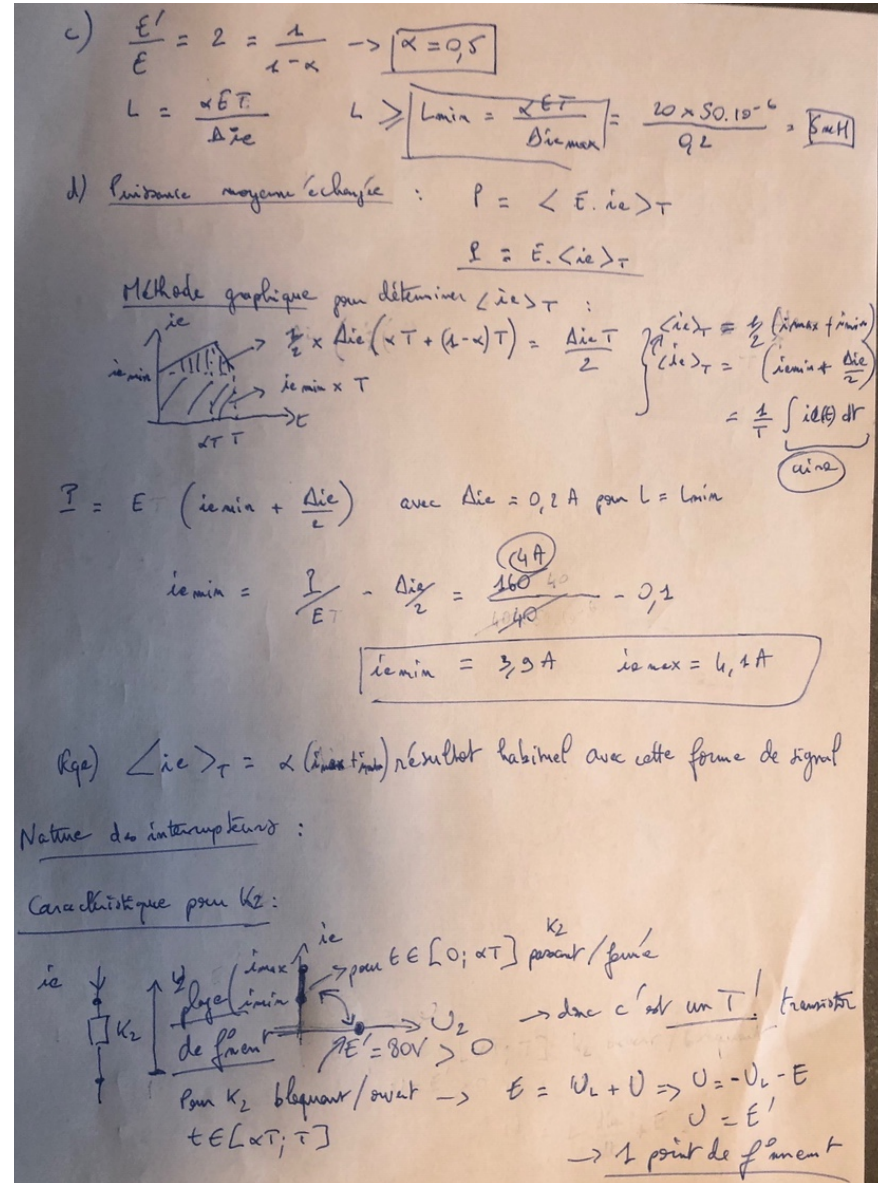 c) E'/E = 2 = 1/(1-α) → α = 0,5
L = αET/Δie L ≥ Lmin = αET/Δiemax = 20 x 50.10⁻⁶/0,2 = 5mH
d) Puissance moyenne échangée : P = < E. ie >T
P = E. <ie>T
Méthode graphique pour déterminer <ie>T :
ie
1/2 x Δie(αT + (1-α)T) = ΔieT/2
<ie>T = 1/2 (imax + imin)
iemin
iemin x T
<ie>T = (iemin + Δie/2)
t
αT T
= 1/T ∫ ie(t) dt
aire
P = E (iemin + Δie/2) avec Δie = 0,2 A pour L = Lmin
4A
iemin = P/E - Δie/2 = 160/40 - 0,1
iemin = 3,9 A iemax = 4,1A
Rqe) <ie>T = α (imax + imin) résultat habituel avec cette forme de signal
Nature des interrupteurs :
Caractéristique pour K2 :
ie K2
imax → pour t ∈ [0; αT] passant / fermé
ie K2 plage imin U2 → donc c'est un T ! transistor
de fonent E' = 80V > 0
Pour K2 bloquant / ouvert → E = UL + U ⇒ U = -UL - E
t ∈ [αT; T] U = E'
→ 1 point de fonent